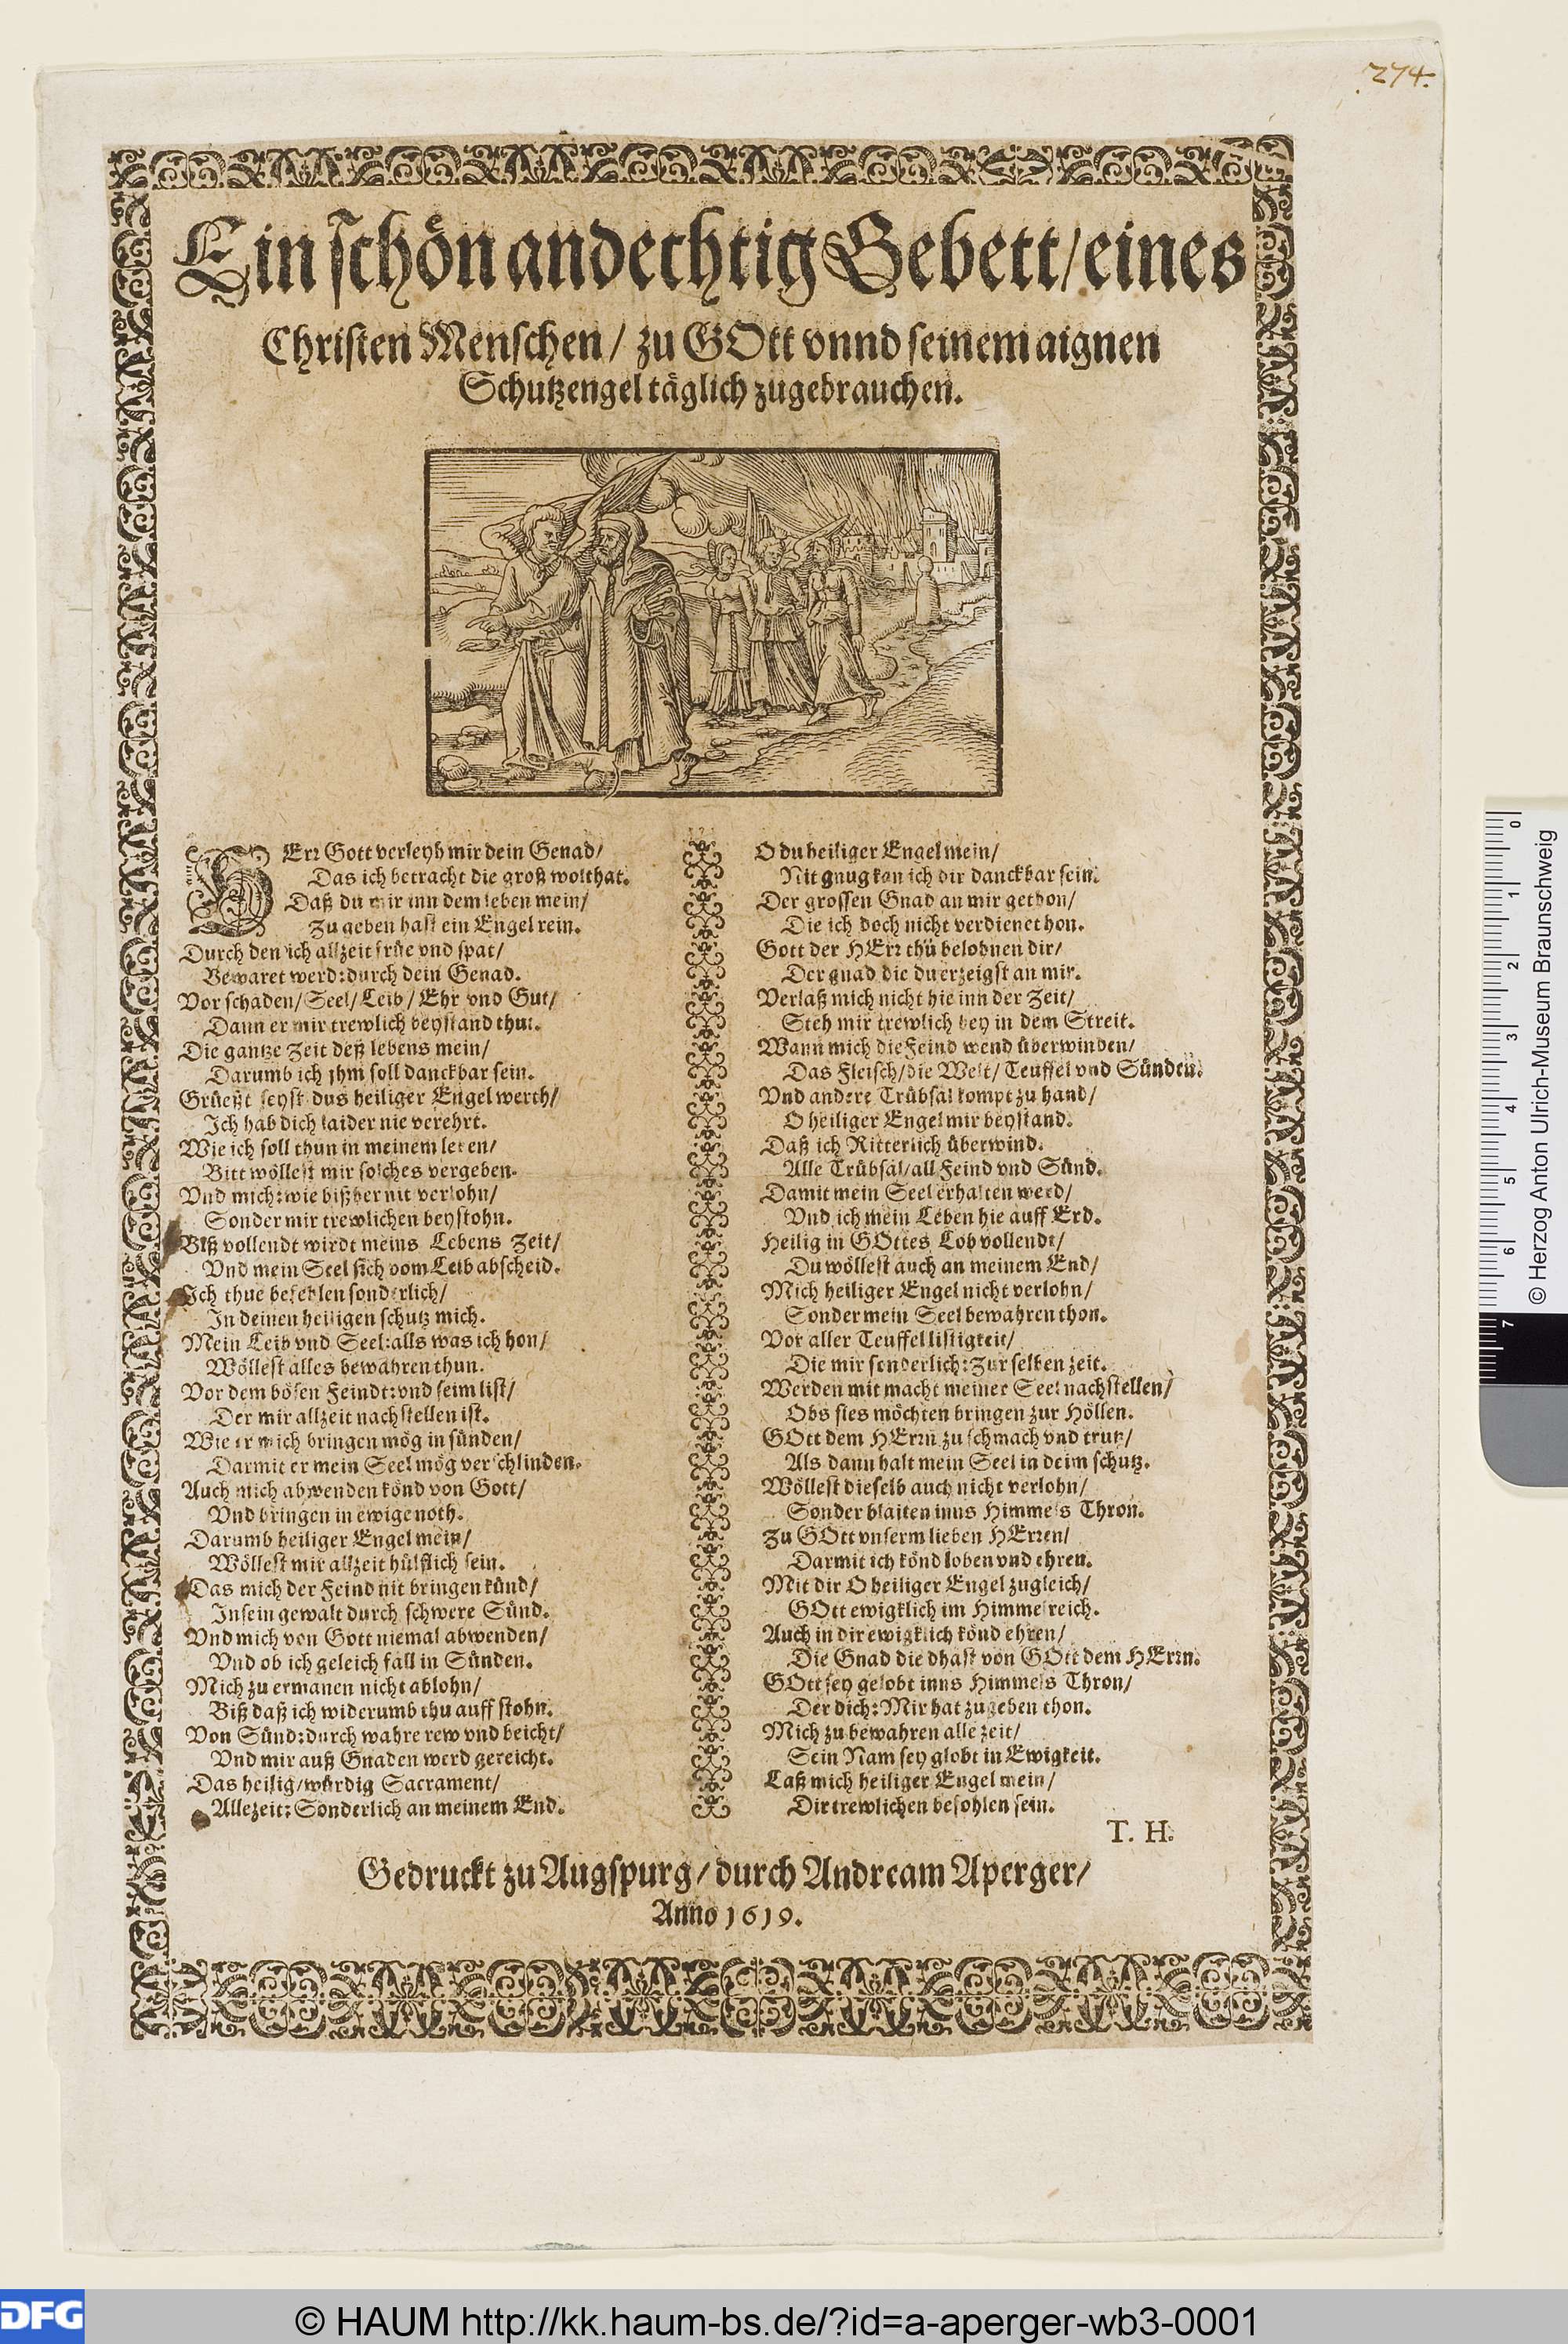 274.
Ein schön andechtig Gebett/ eines
Christen Menschen/ zu GOtt vnnd seinem aignen
Schutzengel täglich zugebrauchen.
HErr Gott verleyh mir dein Genad/
Das ich betracht die groß wolthat.
Daß du mir inn dem leben mein/
Zu geben hast ein Engel rein.
Durch den ich allzeit früe vnd spat/
Bewaret werd: durch dein Genad.
Vor schaden/ Seel/ Leib/ Ehr vnd Gut/
Dann er mir trewlich beystand thut.
Die gantze Zeit deß lebens mein/
Darumb ich jhm soll danckbar sein.
Grüeßt seyst dus heiliger Engel werth/
Ich hab dich laider nie verehrt.
Wie ich soll thun in meinem leben/
Bitt wöllest mir solches vergeben.
Vnd mich: wie bißher nit verlohn/
Sonder mir trewlichen beystohn.
Biß vollendt wirdt meins Lebens Zeit/
Vnd mein Seel sich vom Leib abscheid.
Ich thue befehlen sonderlich/
In deinen heiligen schutz mich.
Mein Leib vnd Seel: alls was ich hon/
Wöllest alles bewahren thun.
Vor dem bösen Feindt: vnd seim list/
Der mir allzeit nachstellen ist.
Wie er mich bringen mög in sünden/
Darmit er mein Seel mög verschlinden.
Auch mich abwenden könd von Gott/
Vnd bringen in ewige noth.
Darumb heiliger Engel mein/
Wöllest mir allzeit hülfflich sein.
Das mich der Feind nit bringen künd/
In sein gewalt durch schwere Sünd.
Vnd mich von Gott niemal abwenden/
Vnd ob ich geleich fall in Sünden.
Mich zu ermanen nicht ablohn/
Biß daß ich widerumb thu auff stohn.
Von Sünd: durch wahre rew vnd beicht/
Vnd mir auß Gnaden werd gereicht.
Das heilig/ würdig Sacrament/
Allezeit: Sonderlich an meinem End.
O du heiliger Engel mein/
Nit gnug kan ich dir danckbar sein.
Der grossen Gnad an mir gethon/
Die ich doch nicht verdienet hon.
Gott der HErr thü belohnen dir/
Der gnad die du erzeigst an mir.
Verlaß mich nicht hie inn der Zeit/
Steh mir trewlich bey in dem Streit.
Wann mich die Feind wend überwinden/
Das Fleisch/ die Welt/ Teuffel vnd Sünden.
Vnd andere Trübsal kompt zu hand/
O heiliger Engel mir beystand.
Daß ich Ritterlich überwind.
Alle Trübsal/ all Feind vnd Sünd.
Damit mein Seel erhalten werd/
Vnd ich mein Leben hie auff Erd.
Heilig in GOttes Lob vollendt/
Du wöllest auch an meinem End/
Mich heiliger Engel nicht verlohn/
Sonder mein Seel bewahren thon.
Vor aller Teuffel listigkeit/
Die mir sonderlich: Zur selben zeit.
Werden mit macht meiner Seel nachstellen/
Obs sies möchten bringen zur Höllen.
GOtt dem HErrn zu schmach vnd trutz/
Als dann halt mein Seel in deim schutz.
Wöllest dieselb auch nicht verlohn/
Sonder blaiten inns Himmels Thron.
Zu GOtt vnserm lieben HErren/
Darmit ich könd loben vnd ehren.
Mit dir O heiliger Engel zugleich/
GOtt ewigklich im Himmelreich.
Auch in dir ewigklich könd ehren/
Die Gnad die dhast von GOtt dem HErrn.
GOtt sey gelobt inns Himmels Thron/
Der dich: Mir hat zugeben thon.
Mich zu bewahren alle zeit/
Sein Nam sey globt in Ewigkeit.
Laß mich heiliger Engel mein/
Dir trewlichen befohlen sein.
T. H.
Gedruckt zu Augspurg/ durch Andream Aperger/
Anno 1619.
0 1 2 3 4 5 6 7
© Herzog Anton Ulrich-Museum Braunschweig
DFG
© HAUM http://kk.haum-bs.de/?id=a-aperger-wb3-0001